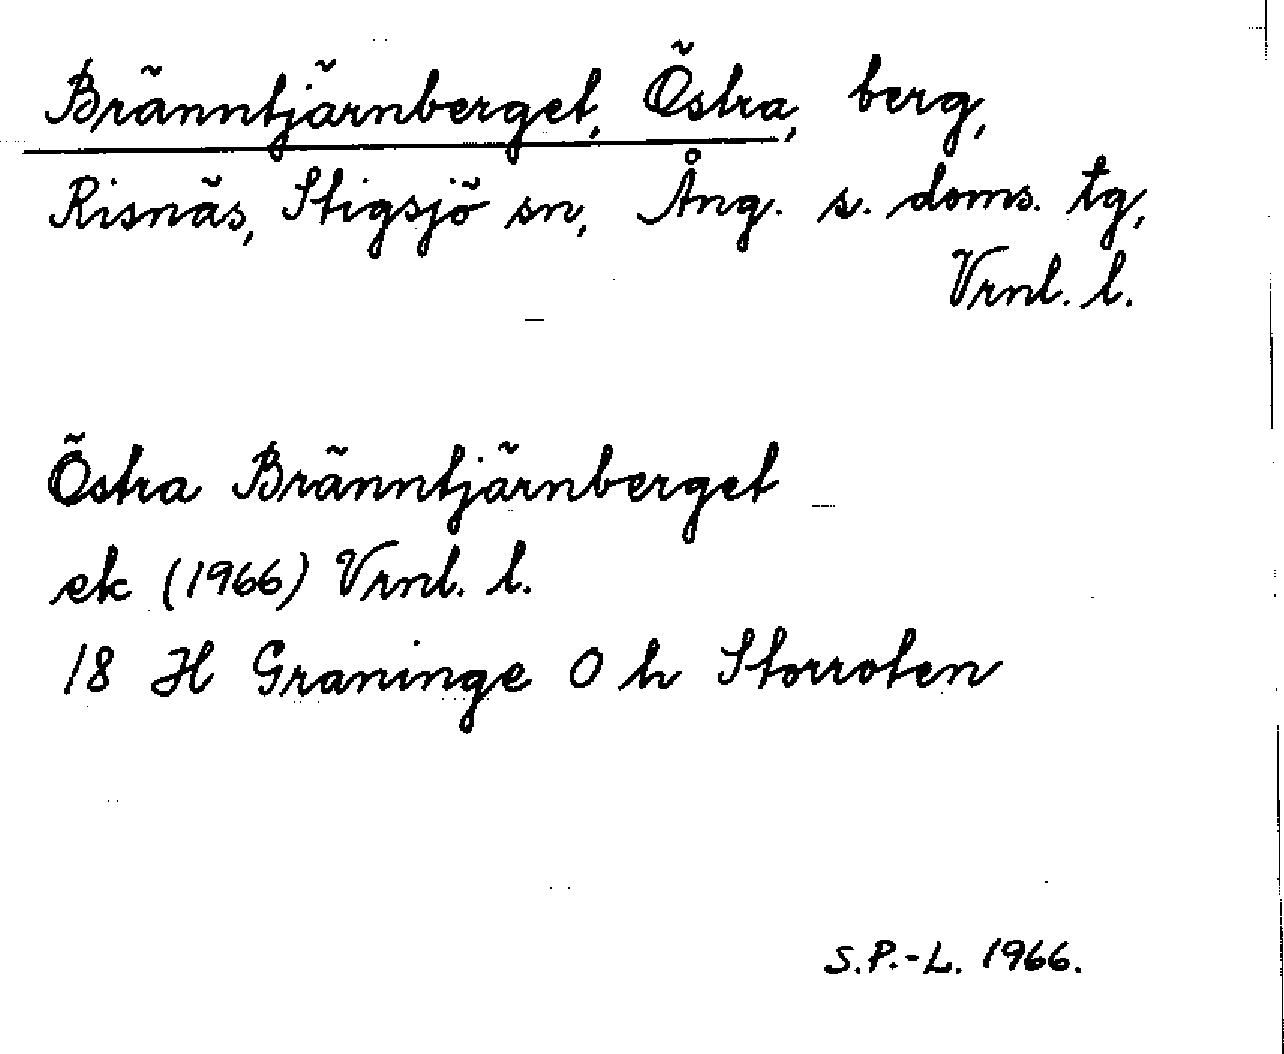 Bränntjärnberget, Östra, berg,
Risnäs, Stigsjö sn, Ång. s. doms. tg,
Vrnl. l.
Östra Bränntjärnberget
ek (1966) Vrnl. l.
18 H Graninge 0 h Storroten
S.P.-L. 1966.